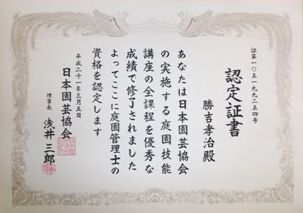 証第一〇五一九九二五四号
認定証書
勝吉孝治殿
あなたは日本園芸協会
の実施する庭園技能
講座の全課程を優秀な
成績で修了されました
よってここに庭園管理士の
資格を認定します
平成二十一年三月五日
日本園芸協会
理事長 浅井三郎